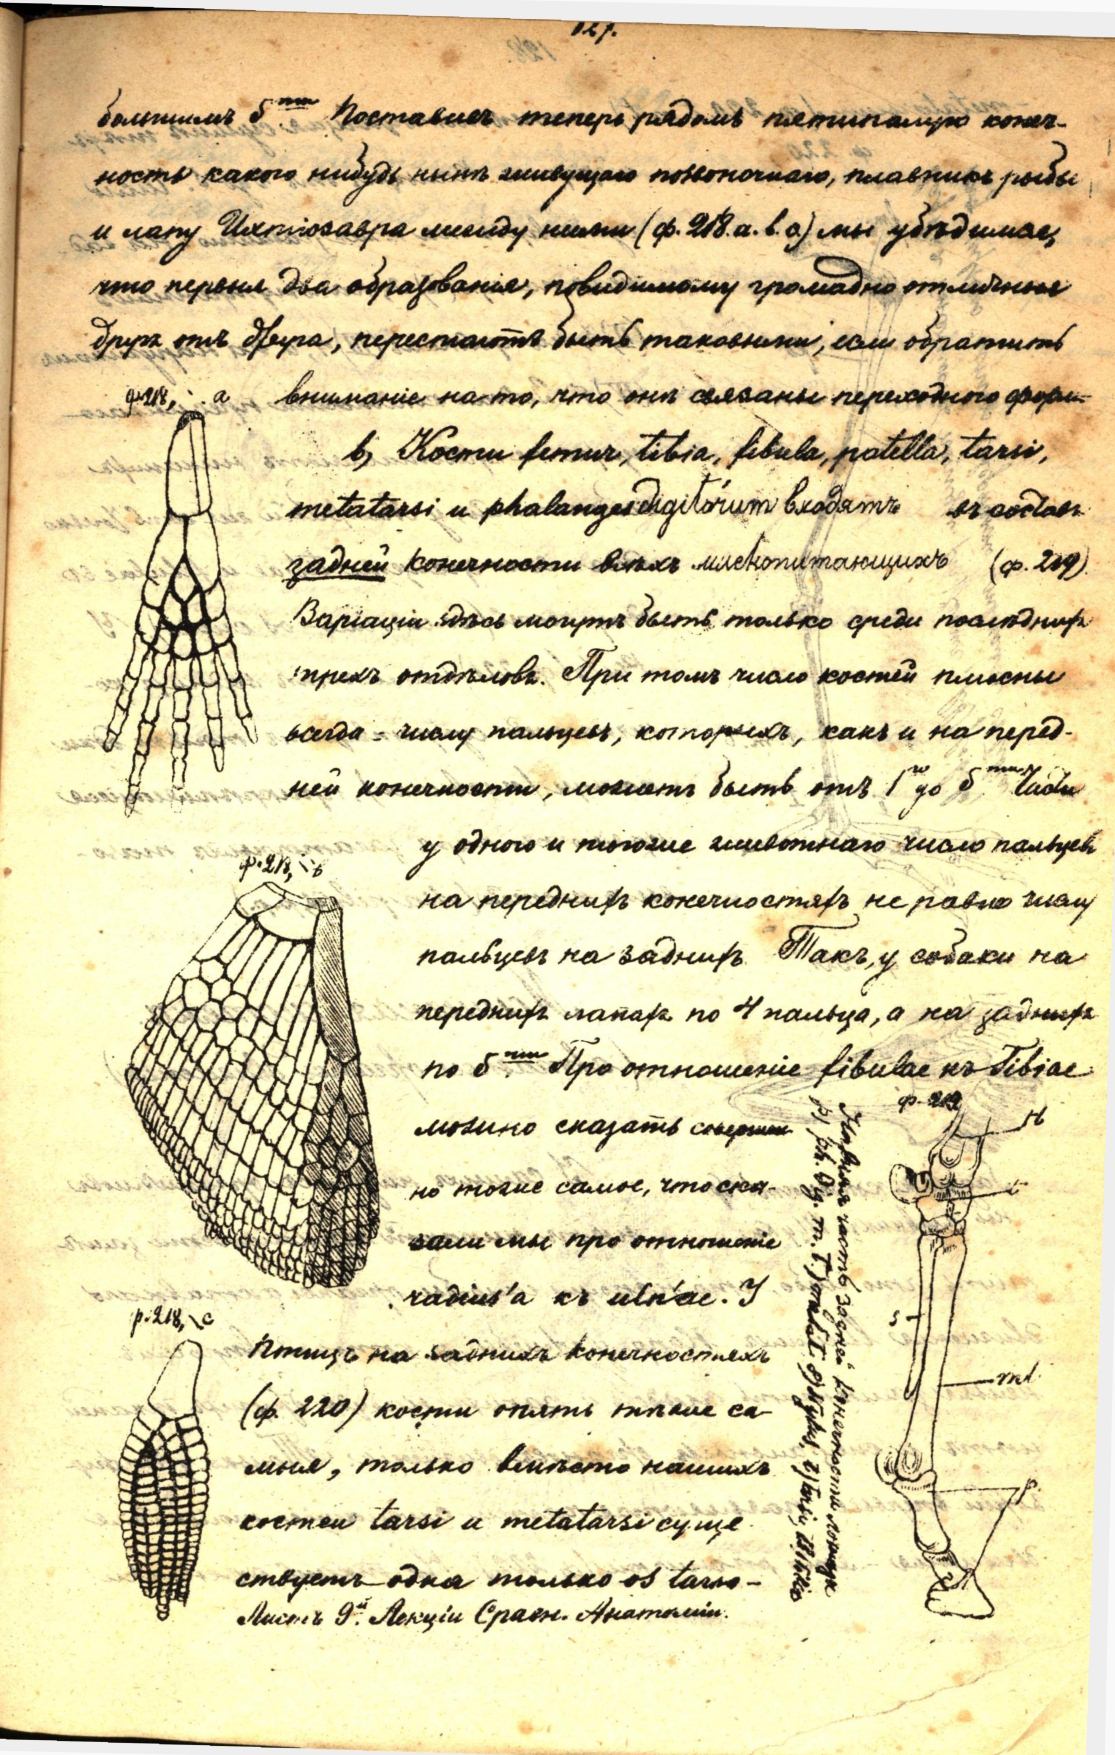 127.
большимъ 5ти. Поставивъ теперь рядомъ пятипалую конеч-
ность какого нибудь нынѣ живущаго позвоночнаго, плавникъ рыбы
и лапу Ихтіозавра между ними (ф. 218. a. b. c) мы убѣдимся,
что первыя два образованія, повидимому громадно отличныя
другъ отъ друга, перестаютъ быть таковыми, если обратить
ф. 218, a
вниманіе на то, что онѣ связаны переходною форм-
b, Кости femur, tibia, fibula, patella, tarsi,
metatarsi и phalanges digitorum входятъ въ составъ
задней конечности всѣхъ млекопитающихъ (ф. 219)
Варіаціи здѣсь могутъ быть только среди послѣднихъ
трехъ отдѣловъ. При томъ число костей плюсны
всегда = числу пальцевъ, которыхъ, какъ и на перед-
ней конечности, можетъ быть отъ 1го до 5ти.
у одного и тогоже животнаго число пальцевъ
ф. 218, b
на переднихъ конечностяхъ не равно числу
пальцевъ на заднихъ. Такъ, у собаки на
переднихъ лапахъ по 4 пальца, а на заднихъ
по 5ти. Про отношеніе fibulae къ tibiae
можно сказать совершен
но тоже самое, что ска-
зали мы про отношеніе
radius'a къ ulnae. У
ф. 218, c
птицъ на заднихъ конечностяхъ
(ф. 220) кости опять тѣже са-
мыя, только вмѣсто нашихъ
костей tarsi и metatarsi суще
ствуетъ одна только os tarso-
Листъ 9й. Лекціи Сравн. Анатоміи.
ф. 219
t
s
mt.
p.
часть задней конечности лошади